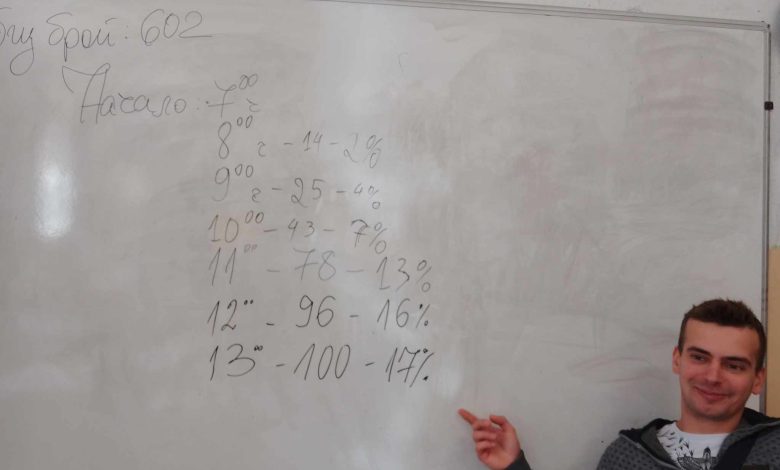 общ брой: 602
Начало: 7⁰⁰ ч
8⁰⁰ ч - 14 - 2%
9⁰⁰ ч - 25 - 4%
10⁰⁰ - 43 - 7%
11⁰⁰ - 78 - 13%
12⁰⁰ - 96 - 16%
13⁰⁰ - 100 - 17%